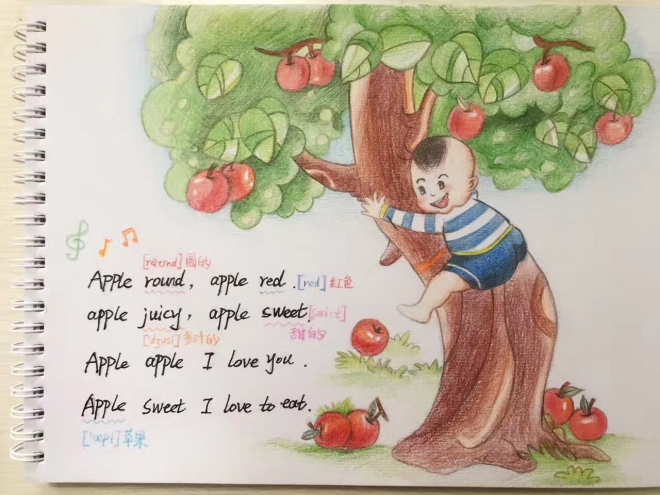 [raʊnd] 圆的
Apple round, apple red. [red] 红色
apple juicy, apple sweet. [swiːt]
[ˈdʒusi] 多汁的 甜的
Apple apple I love you.
Apple sweet I love to eat.
[ˈæpl] 苹果